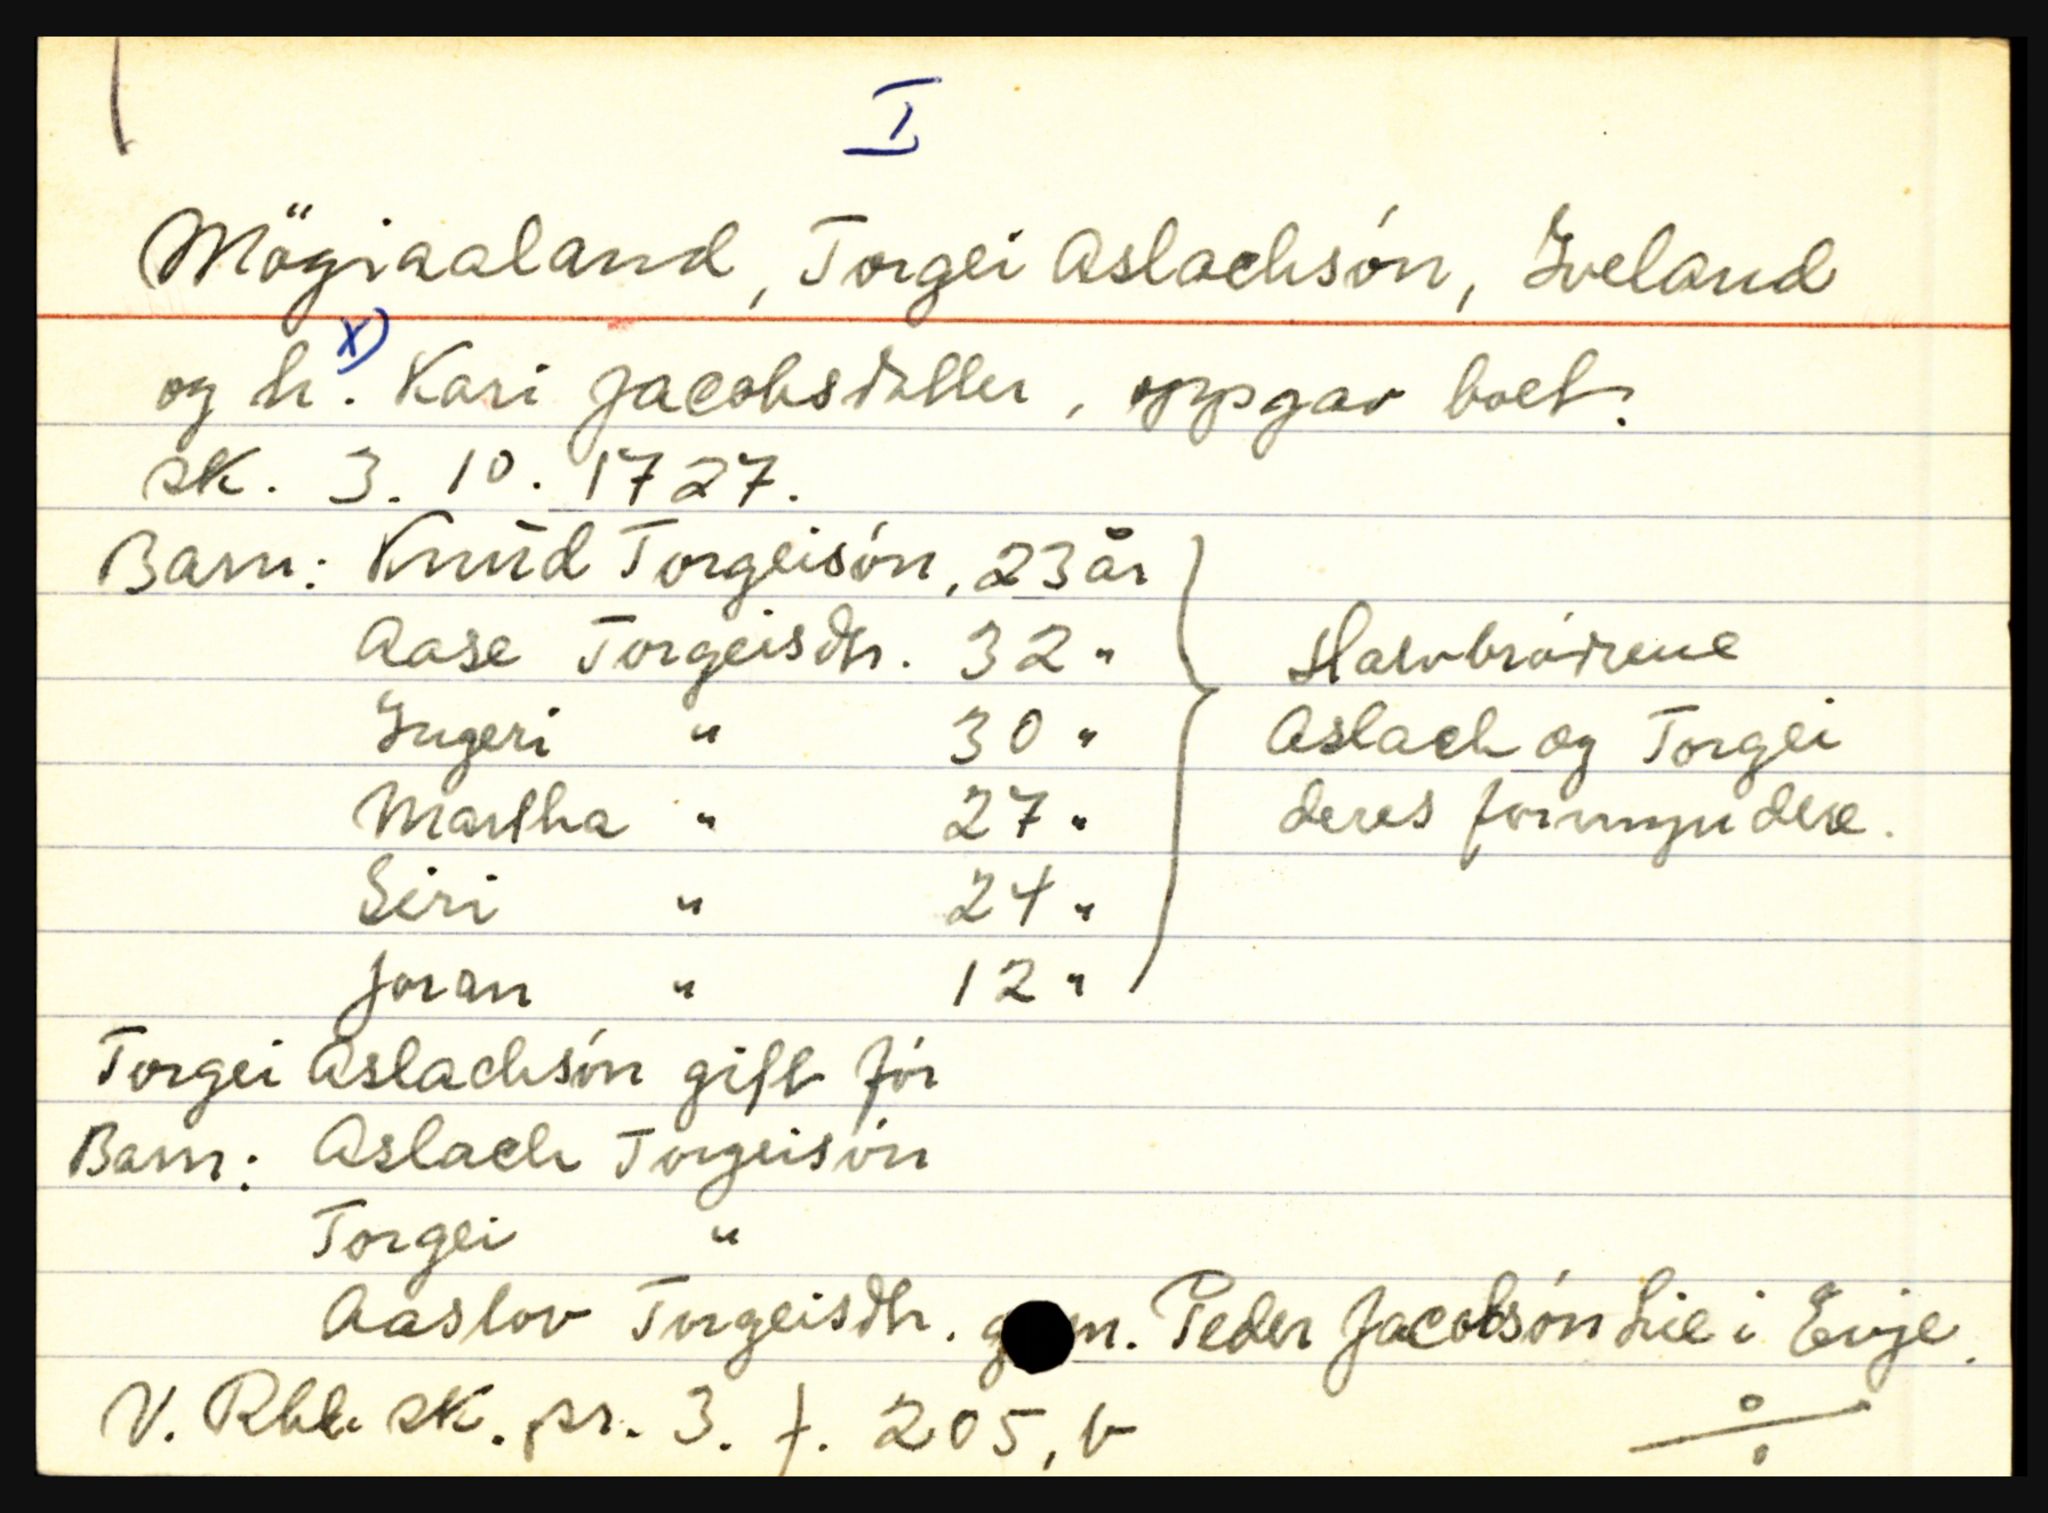 I
Mögiaaland, Torgei Aslachsón, Iveland
og h. x) Kari Jacobsdatter, oppgav boet.
sk. 3. 10. 1727.
Barn: Knud Torgeisón, 23 år
Aase Torgeisdtr. 32 "
Ingeri " 30 " Halvbrödrene
Martha " 27 " Aslach og Torgei
Siri " 24 " deres formyndere.
Joran " 12 "
Torgei Aslachsón gift för
Barn: Aslach Torgeisón
Torgei "
Aaslov Torgeisdtr. g m. Peder Jacobsón Lie i Evje.
V. Rbl. sk. pr. 3. f. 205, b